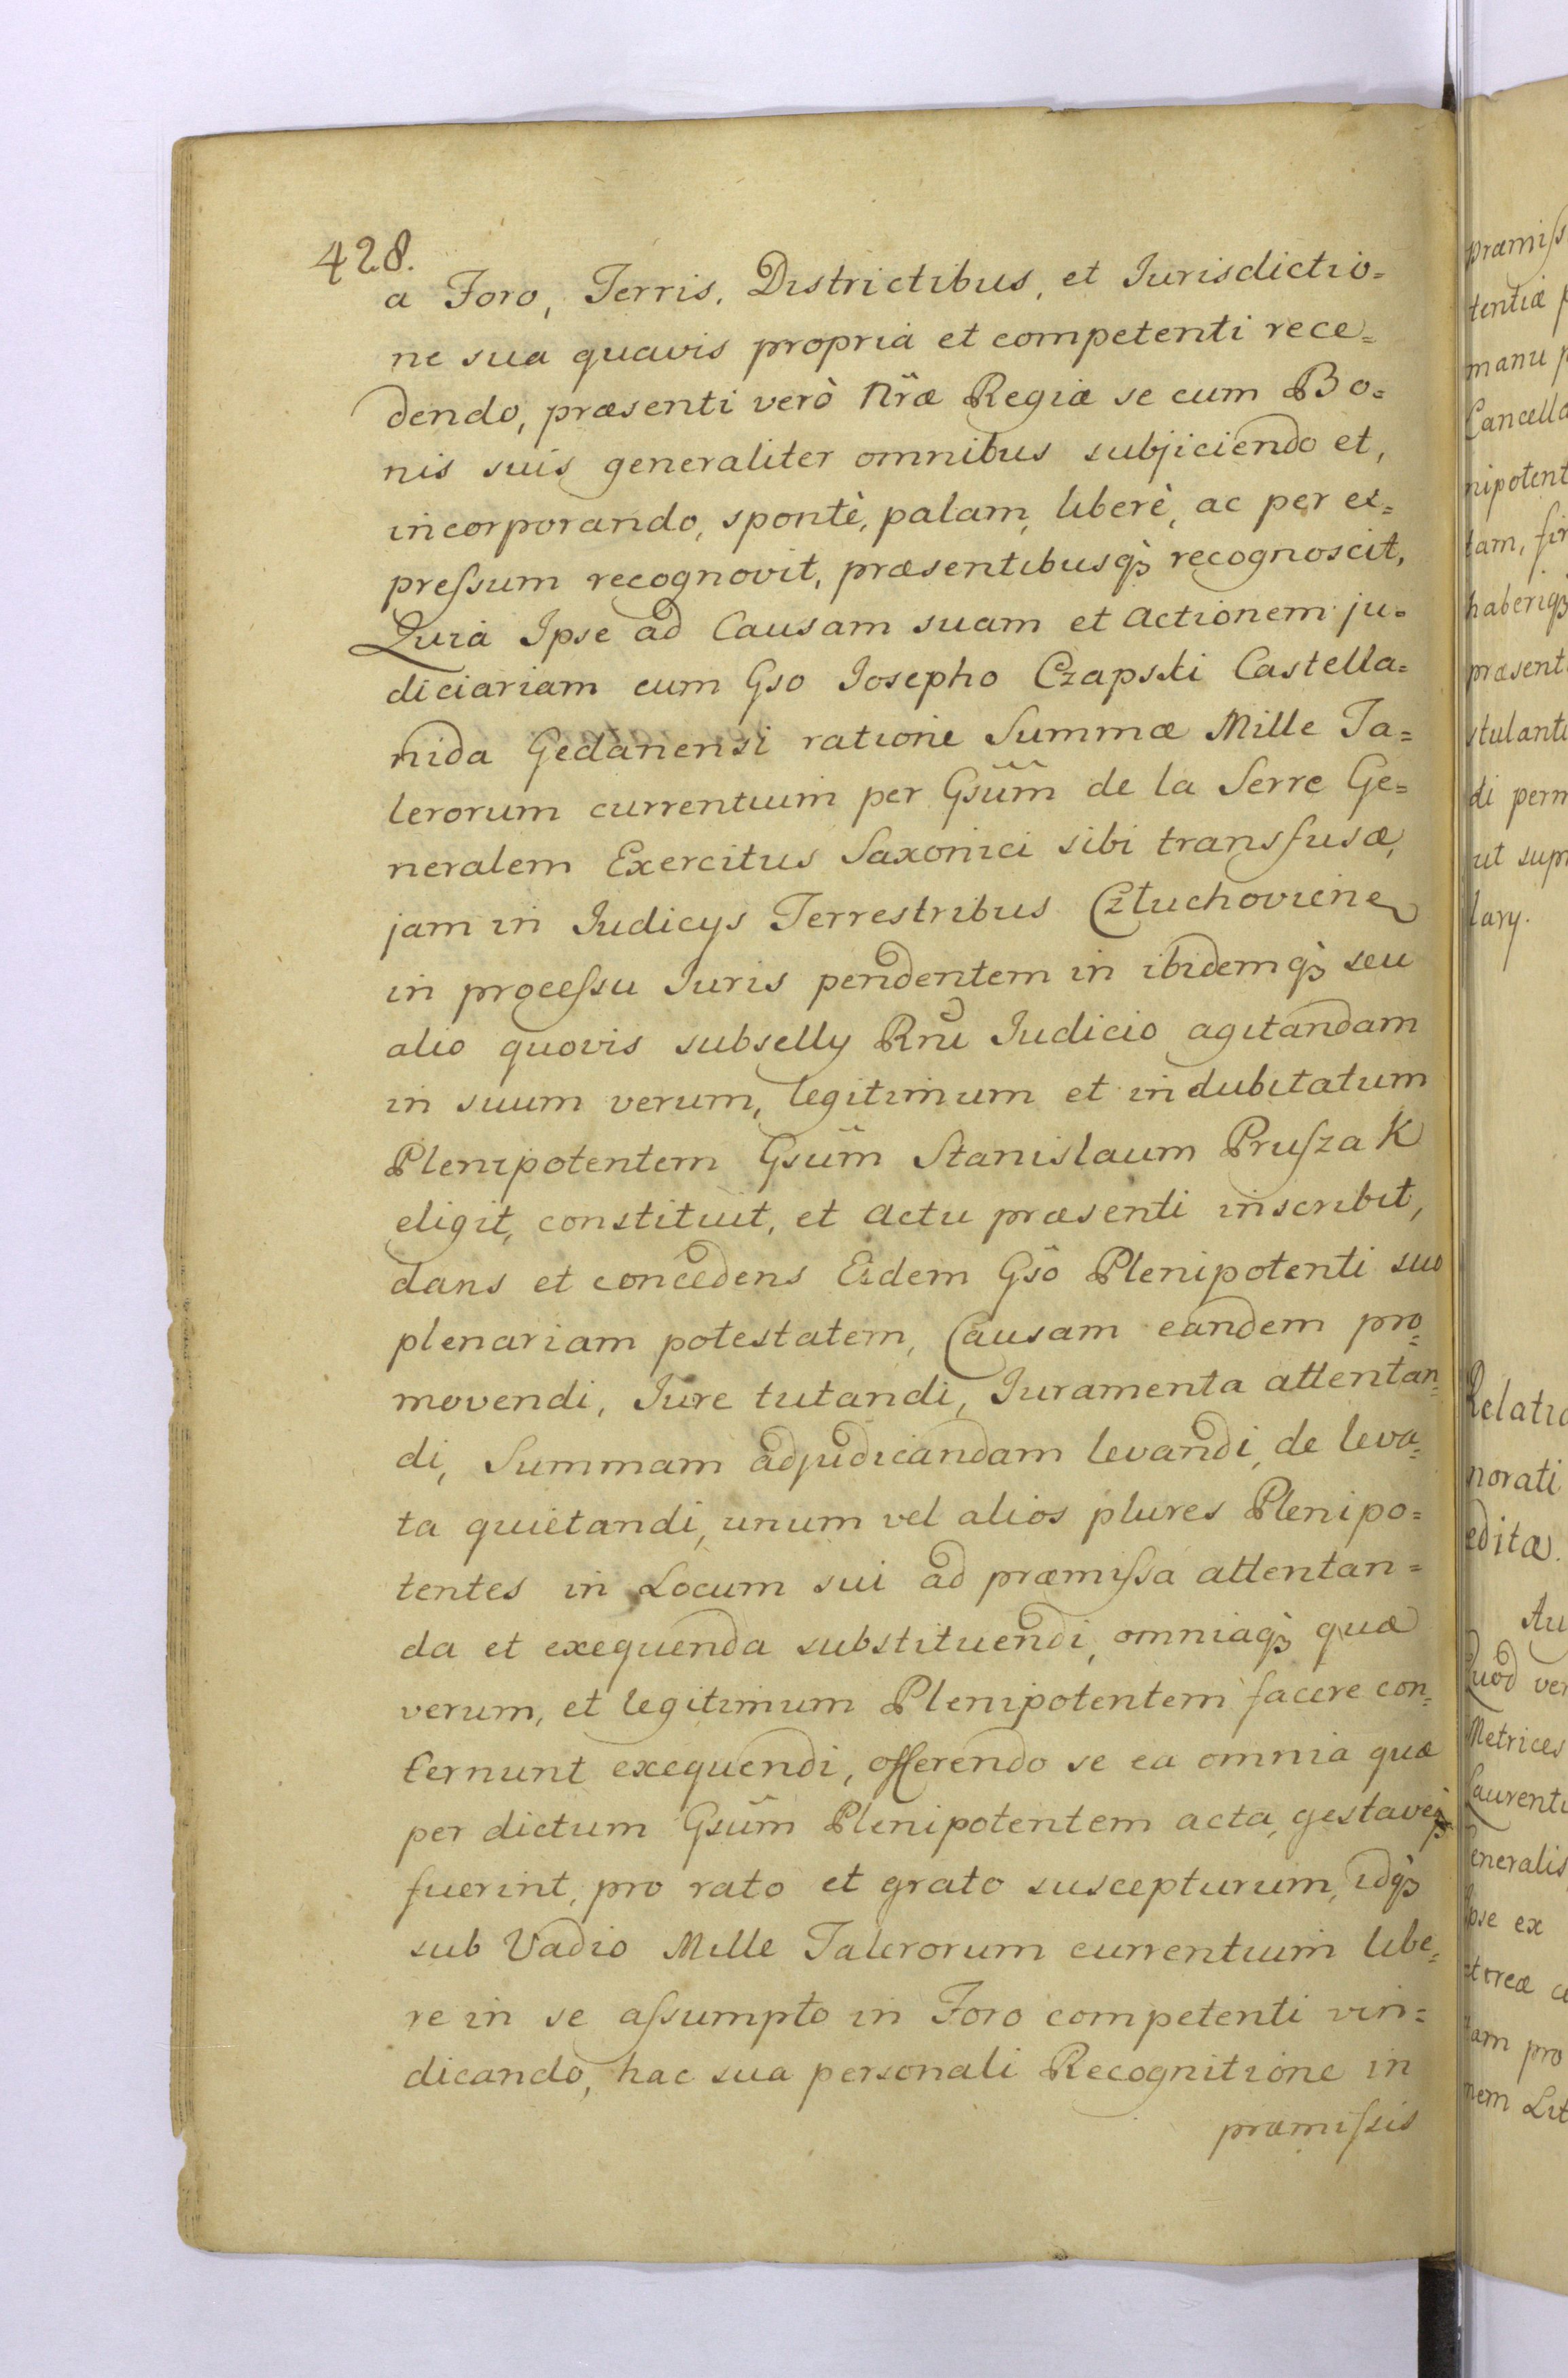 428.
a Foro, Terris, Districtibus, et Jurisdictio=
ne sua quavis propria et competenti rece=
dendo, præsenti verò Nr̃æ Regiæ se cum Bo=
nis suis generaliter omnibus subjiciendo et,
incorporando, spontè, palam, liberè, ac per ex=
preſsum recognovit, præsentibusq̀3 recognoscit,
Quia Ipse ad Causam suam et actionem ju=
diciariam cum Gso Josepho Czapski Castella=
nida Gedanensi ratione Summæ Mille Ta=
lerorum currentium per Gsũm de la Serre Ge=
neralem Exercitus Saxonici sibi transfusæ,
jam in Judicys Terrestribus Człuchovien
in proceſsu Juris pendentem in ibidemq̀3 seu
alio quovis subselly Rnĩ Judicio agitandam
in suum verum, legitimum et indubitatum
Plenipotentem Gsũm Stanislaum Pruſzak
eligit, constituit, et actu præsenti inscribit,
dans et concedens Eidem Gsõ Plenipotenti suo
plenariam potestatem, Causam eandem pro=
movendi, Jure tutandi, Juramenta attentan=
di, Summam adjudicandam levandi, de leva=
ta quietandi, unum vel alios plures Plenipo=
tentes in Locum sui ad præmiſsa attentan=
da et exequenda substituendi, omniaq̀3 quæ
verum, et legitimum Plenipotentem facere con=
cernunt exequendi, offerendo se ea omnia quæ
per dictum Gsũm Plenipotentem acta, gestaveq̀3
fuerint, pro rato et grato suscepturum, idq̀3
sub Vadio Mille Talerorum currentium libe=
re in se aſsumpto in Foro competenti vin=
dicando, hac sua personali Recognitione in
præmiſsis
præmiſs
tentiæ p
manu p
Cancella
nipotent
tam, fir
haberiq3
præsent
stulanti
di perm
ut supr
lary.
Relatio
norati
editæ.
Au
Quod ver
Metrices
Laurenti
Generalis
Ipse ex
ctoreæ
tam pro
nem Lit